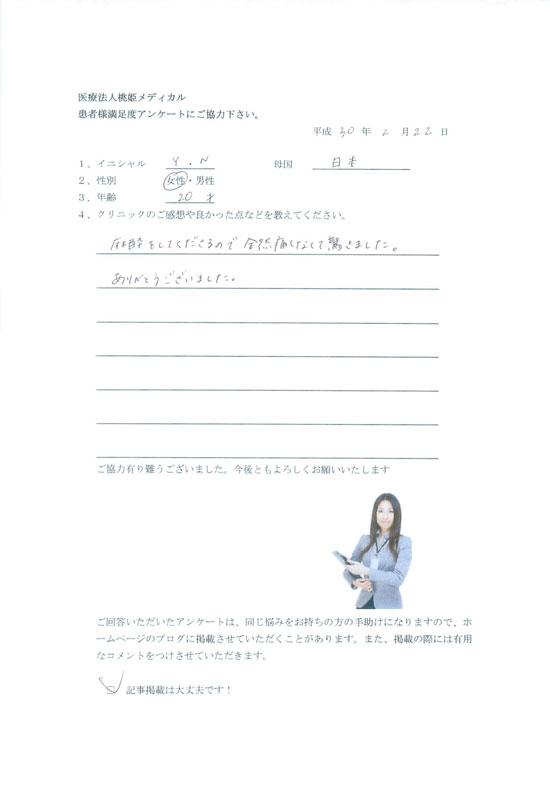 医療法人桃姫メディカル
患者様満足度アンケートにご協力下さい。
平成 30 年 2 月 22 日
1、イニシャル Y.N 母国 日本
2、性別 女性・男性
3、年齢 20 才
4、クリニックのご感想や良かった点などを教えてください。
麻酔をしてくださるので 全然痛くなくて驚きました。
ありがとうございました。
ご協力有り難うございました。今後ともよろしくお願いいたします
ご回答いただいたアンケートは、同じ悩みをお持ちの方の手助けになりますので、ホ
ームページのブログに掲載させていただくことがあります。また、掲載の際には有用
なコメントをつけさせていただきます。
☑ 記事掲載は大丈夫です！